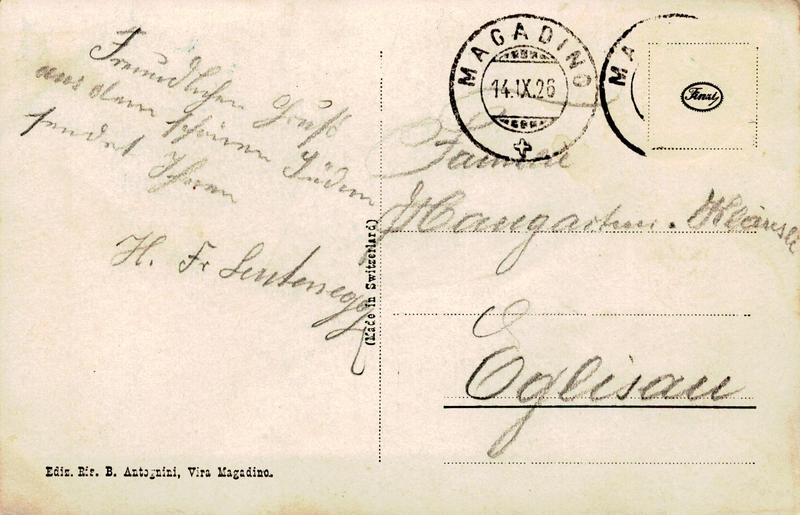 Freundlichen Gruß
aus dem schönen Süden
sendet Ihnen
H. Fr Leutenegger
(Made in Switzerland)
Ediz. Rip. B. Antognini, Vira Magadino.
MAGADINO
14.IX.26
MA
Finzi
Familie
Eglisau